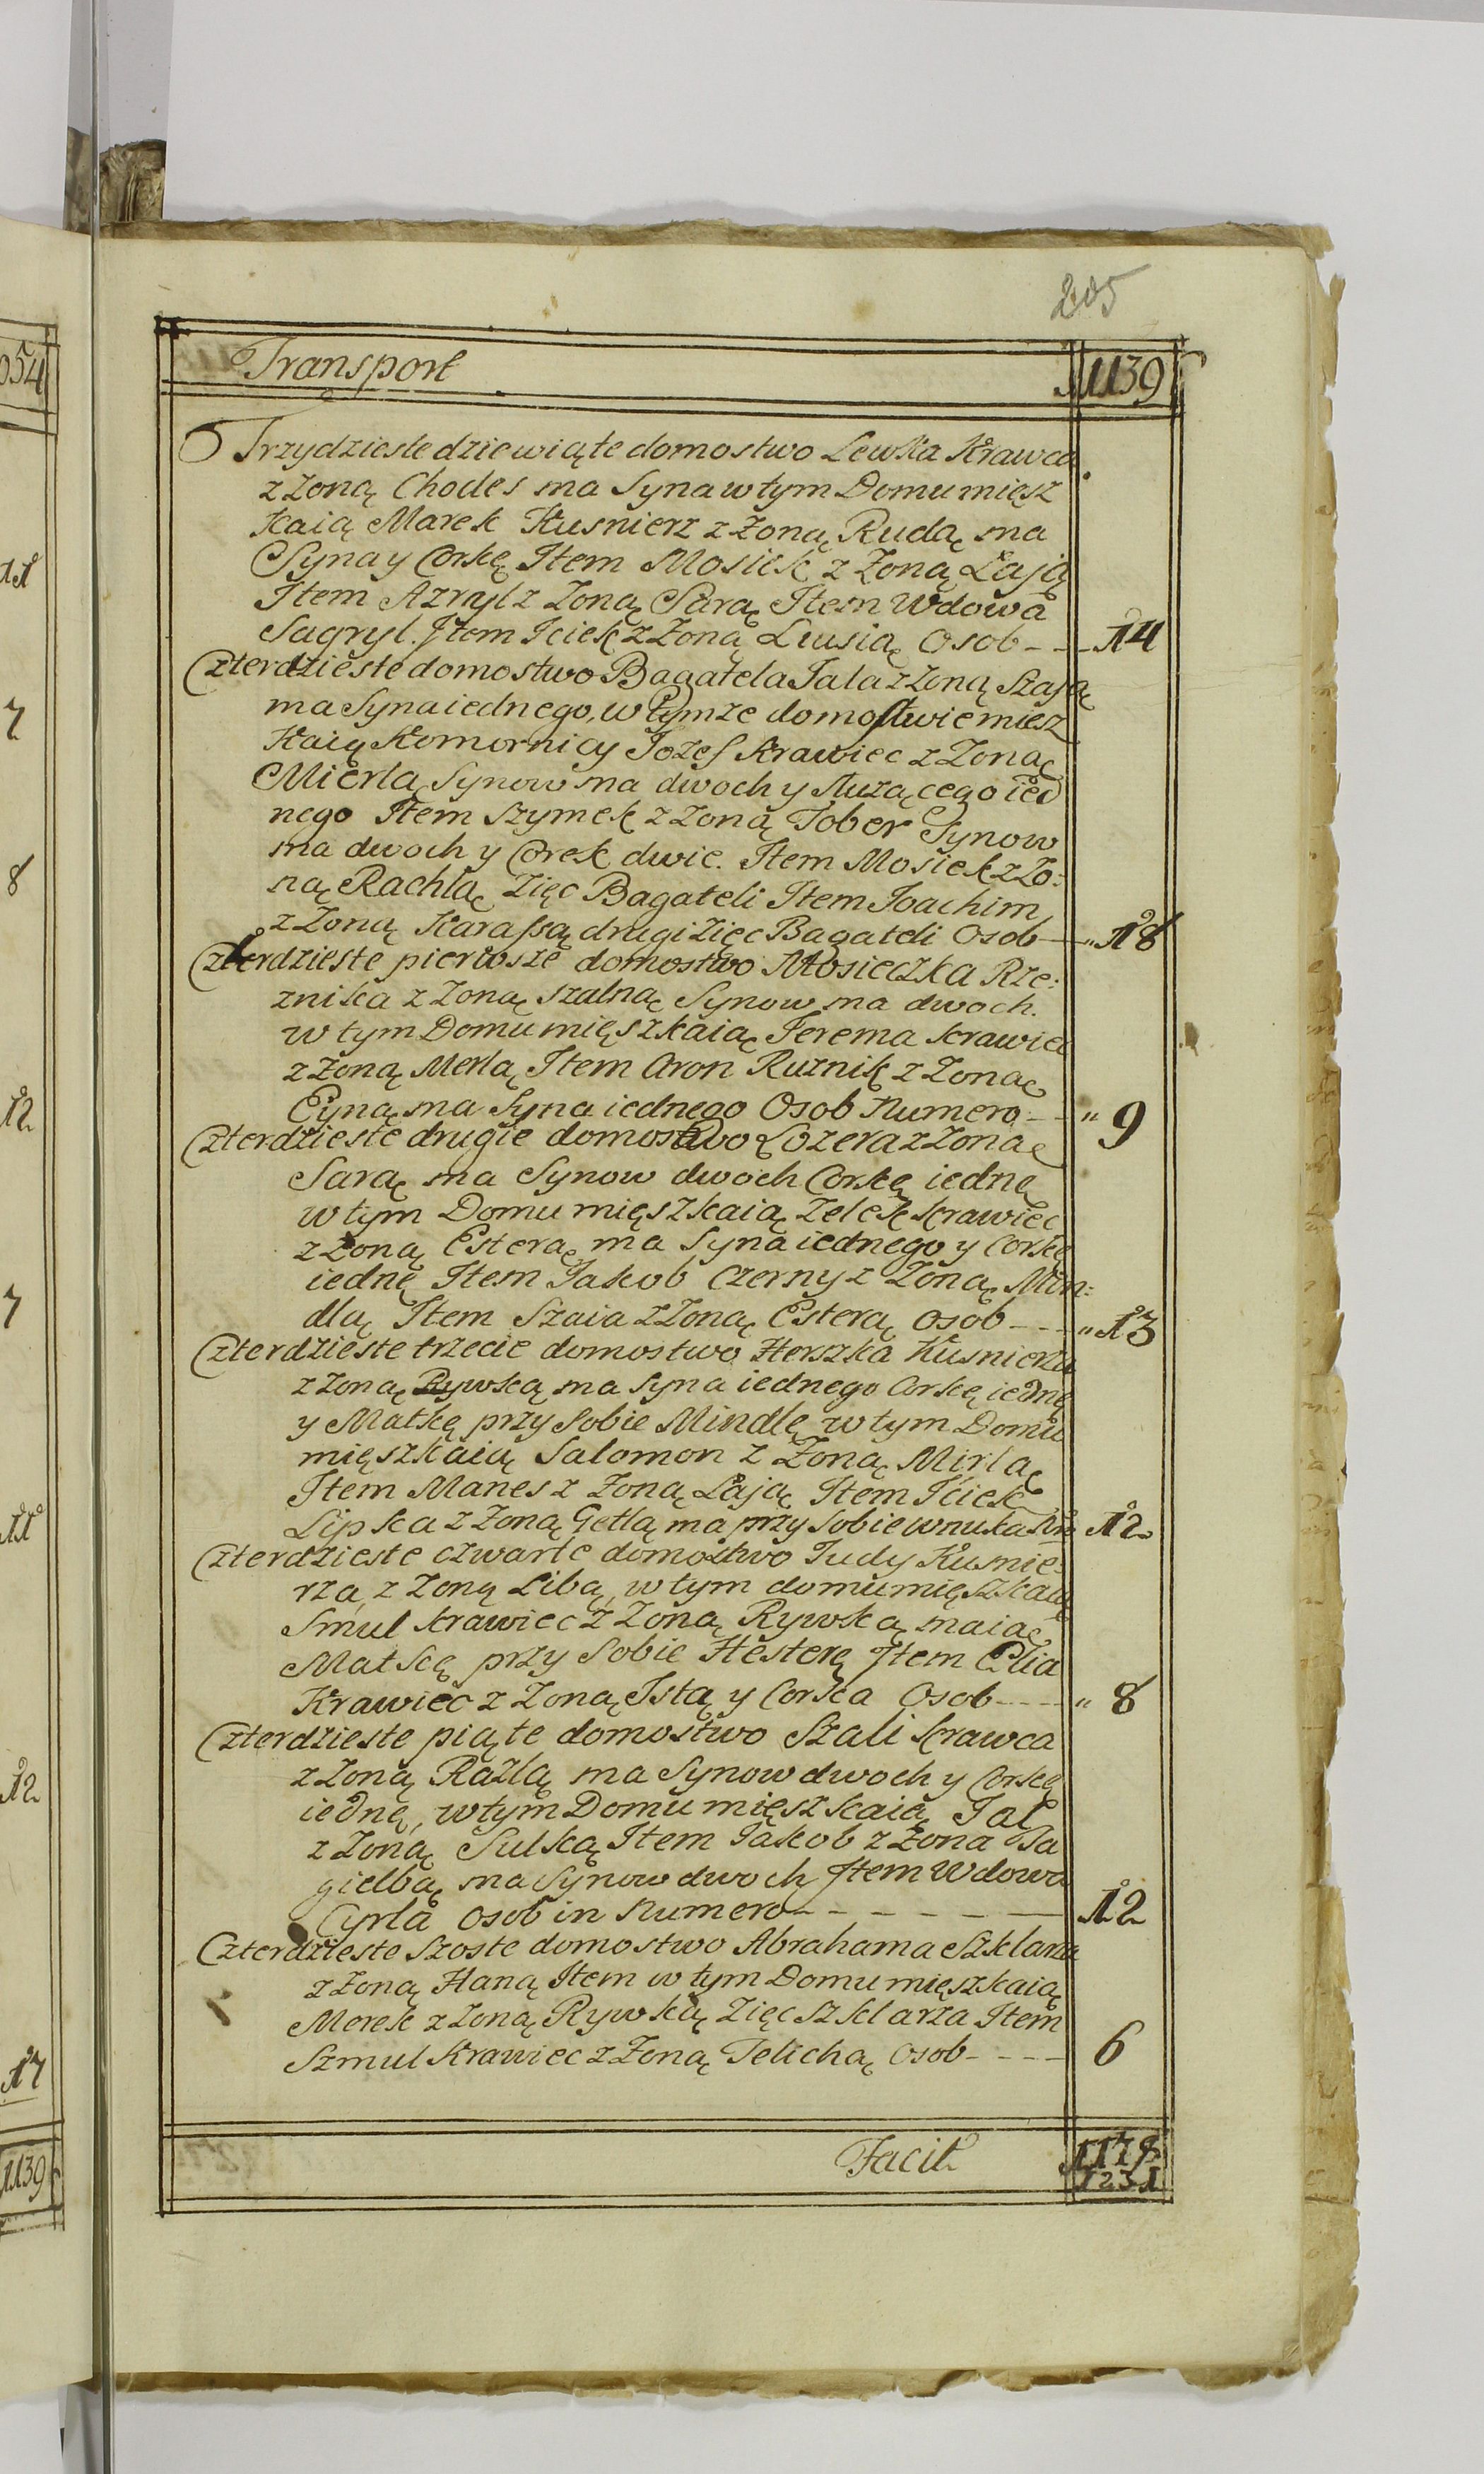 205
Transport 1139
Trzydzieste dziewiąte domostwo Lewka Krawca
z Zoną Chodes ma Syna w tym Domu mięsz
kaią Marek Kusnierz z Zoną Rudą ma
Syna y Corkę Item Mosiek z Zoną Łają
Item Azryl z Zoną Sarą Item Wdowa
Sagryl. Item Iciek z Zoną Liusią Osob - - 14
Czterdzieste domostwo Bagatela Jala z Zoną Szają
ma Syna iednego, w tymze domostwie miesz
kaią Komornicy Jozef Krawiec z Zoną
Mierlą Synow ma dwoch y służącego ied
nego Item Szymek z Zoną Tober Synow
ma dwoch y Corek dwie. Item Mosiek z Zo:
ną Rachlą Zięc Bagateli Item Joachim
z Zoną Karassą drugi Zięc Bagateli Osob — " 18
Czterdzieste pierwsze domostwo Mosieczka Rze:
znika z Zoną Szalną Synow ma dwoch.
w tym Domu mięszkaią Jerema krawiec
z Zoną Merlą Item Aron Ruznik z Zoną
Cyną ma Syna iednego Osob Numero - - " 9
Czterdzieste drugie domostwo Łozera z Zoną
Sarą ma Synow dwoch Corkę iednę
w tym Domu mięszkaią Zelek krawiec
z Zoną Esterą ma Syna iednego y Corkę
iednę Item Jakob Czerny z Zoną Min=
dlą Item Szaia z Zoną Esterą Osob - - - " 13
Czterdzieste trzecie domostwo Herszka Kusnierza
z Zoną Rywską ma Syna iednego Corkę iednę
y Matkę przy Sobie Mindlę w tym Domu
mięszkaią Salomon z Zoną Mirlą
Item Manes z Zoną Łają Item Iciek
Lipska z Zoną Getlą ma przy Sobie wnuka 12
Czterdzieste czwarte domostwo Judy Kusnie:
rza, z Zoną Libą, w tym domu mięszkaią
Smul krawiec z Zoną Rywską maią
Matkę przy Sobie Hesterę Item Elia
Krawiec z Zoną Istą y Corka Osob - - - - " 8
Czterdzieste piąte domostwo Szali krawca
z Zoną Razlą ma Synow dwoch y Corkę
iednę, w tym Domu mięszkaią Jal
z Zoną Sulką Item Jakob z Zona Ja
gielbą ma Synow dwoch Item Wdowa
Cyrla osob in Numero - - - - - - 12
Czterdzieste Szoste domostwo Abrahama Szklarza
z Zoną Haną Item w tym Domu mięszkaią
Merek z Zoną Rywską Zięc Szklarza Item
Szmul Krawiec z Zoną Telichą Osob - - - - 6
Facit 1178
1231
054
11
7
8
12
7
11
12
17
1139